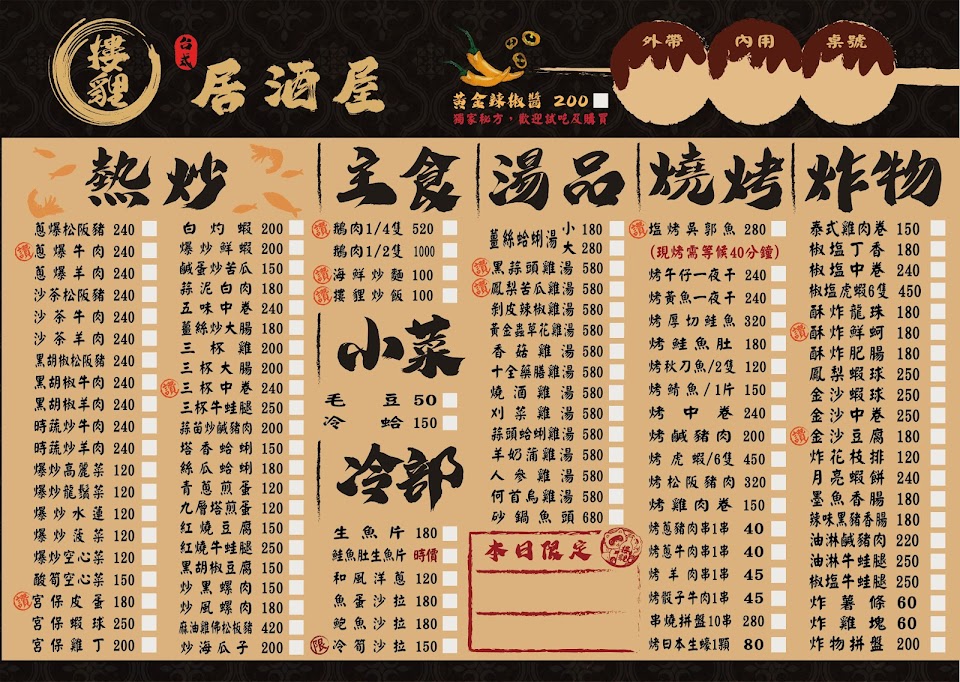 摟貍
台式
居酒屋
黃金辣椒醬 200
獨家秘方，歡迎試吃及購買
外帶
內用
桌號
熱炒
蔥爆松阪豬 240
讚 蔥爆牛肉 240
蔥爆羊肉 240
沙茶松阪豬 240
沙茶牛肉 240
沙茶羊肉 240
黑胡椒松阪豬 240
黑胡椒牛肉 240
黑胡椒羊肉 240
時蔬炒牛肉 240
時蔬炒羊肉 240
爆炒高麗菜 120
爆炒龍鬚菜 120
爆炒水蓮 120
爆炒菠菜 120
爆炒空心菜 120
酸筍空心菜 150
讚 宮保皮蛋 180
宮保蝦球 250
宮保雞丁 200
白灼蝦 200
爆炒鮮蝦 200
鹹蛋炒苦瓜 150
蒜泥白肉 180
五味中卷 240
薑絲炒大腸 180
三杯雞 200
三杯大腸 200
讚 三杯中卷 240
三杯牛蛙腿 250
蒜苗炒鹹豬肉 200
塔香蛤蜊 150
絲瓜蛤蜊 180
青蔥煎蛋 120
九層塔煎蛋 120
紅燒豆腐 150
紅燒牛蛙腿 250
黑胡椒豆腐 150
炒黑螺肉 150
炒風螺肉 180
麻油雞佛松板豬 420
炒海瓜子 200
主食
讚 鵝肉1/4隻 520
鵝肉1/2隻 1000
讚 海鮮炒麵 100
讚 摟貍炒飯 100
小菜
毛豆 50
冷蛤 150
冷部
生魚片 180
鮭魚肚生魚片 時價
和風洋蔥 120
魚蛋沙拉 180
鮑魚沙拉 180
限 冷筍沙拉 150
湯品
薑絲蛤蜊湯 小 180
大 280
讚 黑蒜頭雞湯 580
讚 鳳梨苦瓜雞湯 580
剝皮辣椒雞湯 580
黃金蟲草花雞湯 580
香菇雞湯 580
十全藥膳雞湯 580
燒酒雞湯 580
刈菜雞湯 580
蒜頭蛤蜊雞湯 580
羊奶蒲雞湯 580
人參雞湯 580
何首烏雞湯 580
砂鍋魚頭 680
本日限定
燒烤
讚 塩烤吳郭魚 280
(現烤需等候40分鐘)
烤午仔一夜干 240
烤黃魚一夜干 240
烤厚切鮭魚 320
烤鮭魚肚 180
烤秋刀魚/2隻 120
烤鯖魚/1片 150
烤中卷 240
烤鹹豬肉 200
烤虎蝦/6隻 450
烤松阪豬肉 320
烤雞肉卷 150
烤蔥豬肉串1串 40
烤蔥牛肉串1串 40
烤羊肉串1串 45
烤骰子牛肉1串 45
串燒拼盤10串 280
烤日本生蠔1顆 80
炸物
泰式雞肉卷 150
椒塩丁香 180
椒塩中卷 240
椒塩虎蝦6隻 450
酥炸龍珠 180
讚 酥炸鮮蚵 180
酥炸肥腸 180
鳳梨蝦球 250
金沙蝦球 250
金沙中卷 250
讚 金沙豆腐 180
炸花枝排 120
月亮蝦餅 240
墨魚香腸 180
辣味黑豬香腸 180
油淋鹹豬肉 220
油淋牛蛙腿 250
椒塩牛蛙腿 250
炸薯條 60
炸雞塊 60
炸物拼盤 200